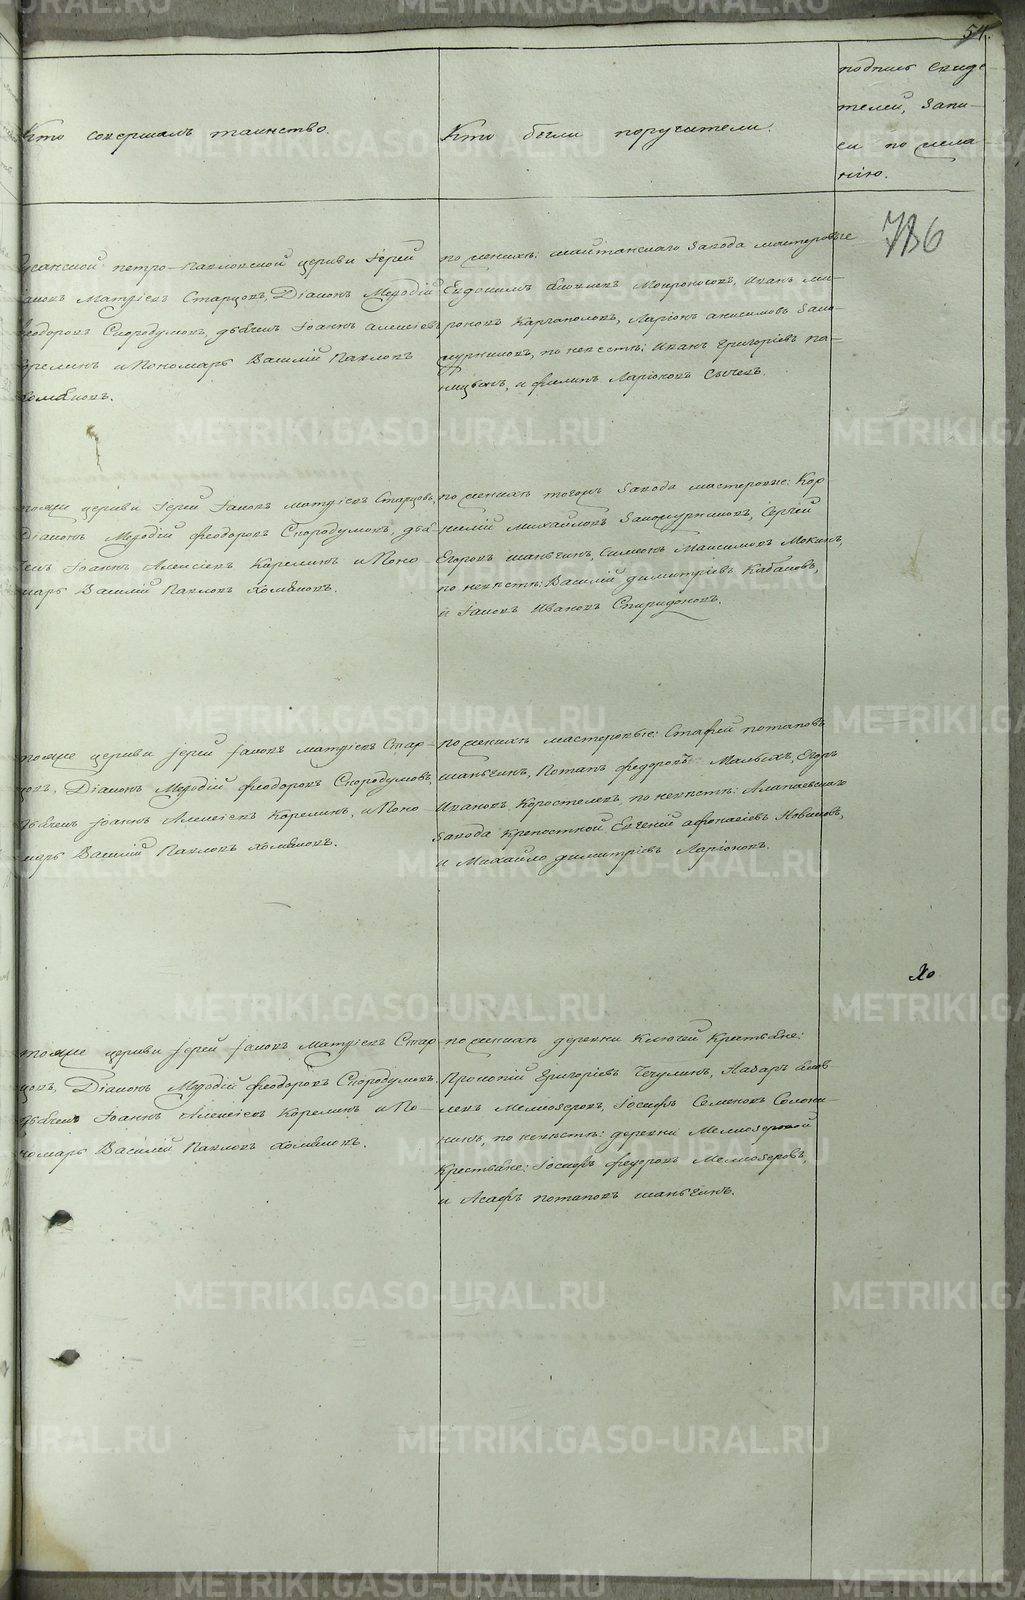 54.
Кто совершалъ таинство.
Кто были поручители.
подпись свиде
телей, запи-
си по жела
нію.
786
Петро-Павловской церкви Іерей
Іаковъ Матѳіевъ Старцовъ, Діаконъ Меѳодій
Ѳеодоровъ Скородумовъ, дьячекъ Іоаннъ Алексіевъ
Карелинъ и Пономарь Василій Павловъ
Хомяковъ.
по женихѣ: шайтанскаго завода мастеровые
Евдокимъ Яковлевъ Мокроносовъ, Иванъ Ми-
роновъ Каргаполовъ, Ларіонъ Анисимовъ Зако-
журниковъ, по невѣстѣ: Иванъ Григоріевъ Па-
и Филипъ Ларіоновъ Сычевъ.
тояже церкви Іерей Іаковъ Матѳіевъ Старцовъ,
Діаконъ Меѳодій Ѳеодоровъ Скородумовъ, дья
чекъ Іоаннъ Алексіевъ Карелинъ и Поно-
марь Василій Павловъ Хомяковъ.
по женихѣ тогожъ завода мастеровые: Кор
нилій Михайловъ Закожурниковъ, Сергій
Егоровъ шаньгинъ, Симеонъ Максимовъ Мокинъ,
по невѣстѣ: Василій Димитріевъ Кабаковъ,
и Іаковъ Ивановъ Спиридоновъ.
тояже церкви Іерей Іаковъ Матѳіевъ Стар-
цовъ, Діаконъ Меѳодій Ѳеодоровъ Скородумовъ,
дьячекъ Іоаннъ Алексіевъ Карелинъ, и Поно-
марь Василій Павловъ Хомяковъ.
по женихѣ мастеровые: Стафей потаповъ
шаньгинъ, Потапъ Федоровъ Егоръ
Ивановъ Коростелевъ, по невѣстѣ: Алапаевскаго
завода Крепостной Евгеній Афонасіевъ
и Михайло Димитріевъ Ларіоновъ.
тояже церкви Іерей Іаковъ Матѳіевъ Стар
цовъ, Діаконъ Меѳодій Ѳеодоровъ Скородумовъ,
дьячекъ Іоаннъ Алексіевъ Карелинъ и По-
номарь Василій Павловъ Хомяковъ.
по женихѣ деревни Ключей Крестьяне:
Прокопій Григоріевъ Чечулинъ, Назаръ Яков
левъ Мелкозеровъ, Іосифъ Семеновъ Солони-
нинъ, по невѣстѣ: деревни Мелкозеровой
Крестьяне: Іосифъ Федоровъ Мелкозеровъ,
и Асафъ Потаповъ шаньгинъ.
METRIKI.GASO-URAL.RU